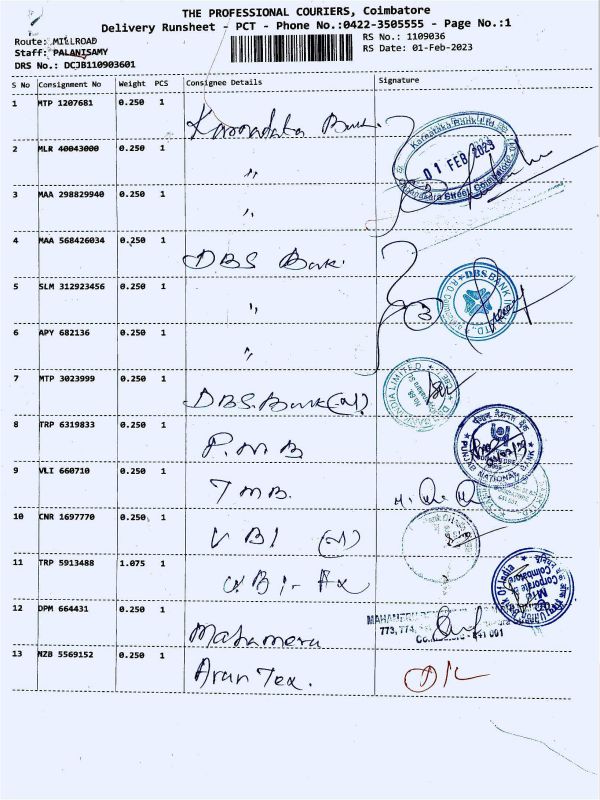 THE PROFESSIONAL COURIERS, Coimbatore
Delivery Runsheet - PCT - Phone No.:0422-3505555 - Page No.:1
Route: MILLROAD
RS No.: 1109036
Staff: PALANISAMY
RS Date: 01-Feb-2023
DRS No.: DCJB110903601
S No Consignment No Weight PCS Consignee Details Signature
1 MTP 1207681 0.250 1 Karnataka Bank.
Karnataka Bank Ltd
01 FEB 2023
2 MLR 40043000 0.250 1 "
3 MAA 298829940 0.250 1 "
4 MAA 568426034 0.250 1 DBS Bank.
3
DBS BANK INDIA LTD.
5 SLM 312923456 0.250 1 "
6 APY 682136 0.250 1 "
7 MTP 3023999 0.250 1 DBS Bank
DBS BANK INDIA LIMITED
8 TRP 6319833 0.250 1 P.N.B
PUNJAB NATIONAL BANK
9 VLI 660710 0.250 1 TMB.
10 CNR 1697770 0.250 1 UBI
11 TRP 5913488 1.075 1 UBI - Fx
Union Bank Of India
Corporate
Coimbatore
12 DPM 664431 0.250 1 Mahameru
773, 774,
641 001
13 NZB 5569152 0.250 1 Arun Tex.